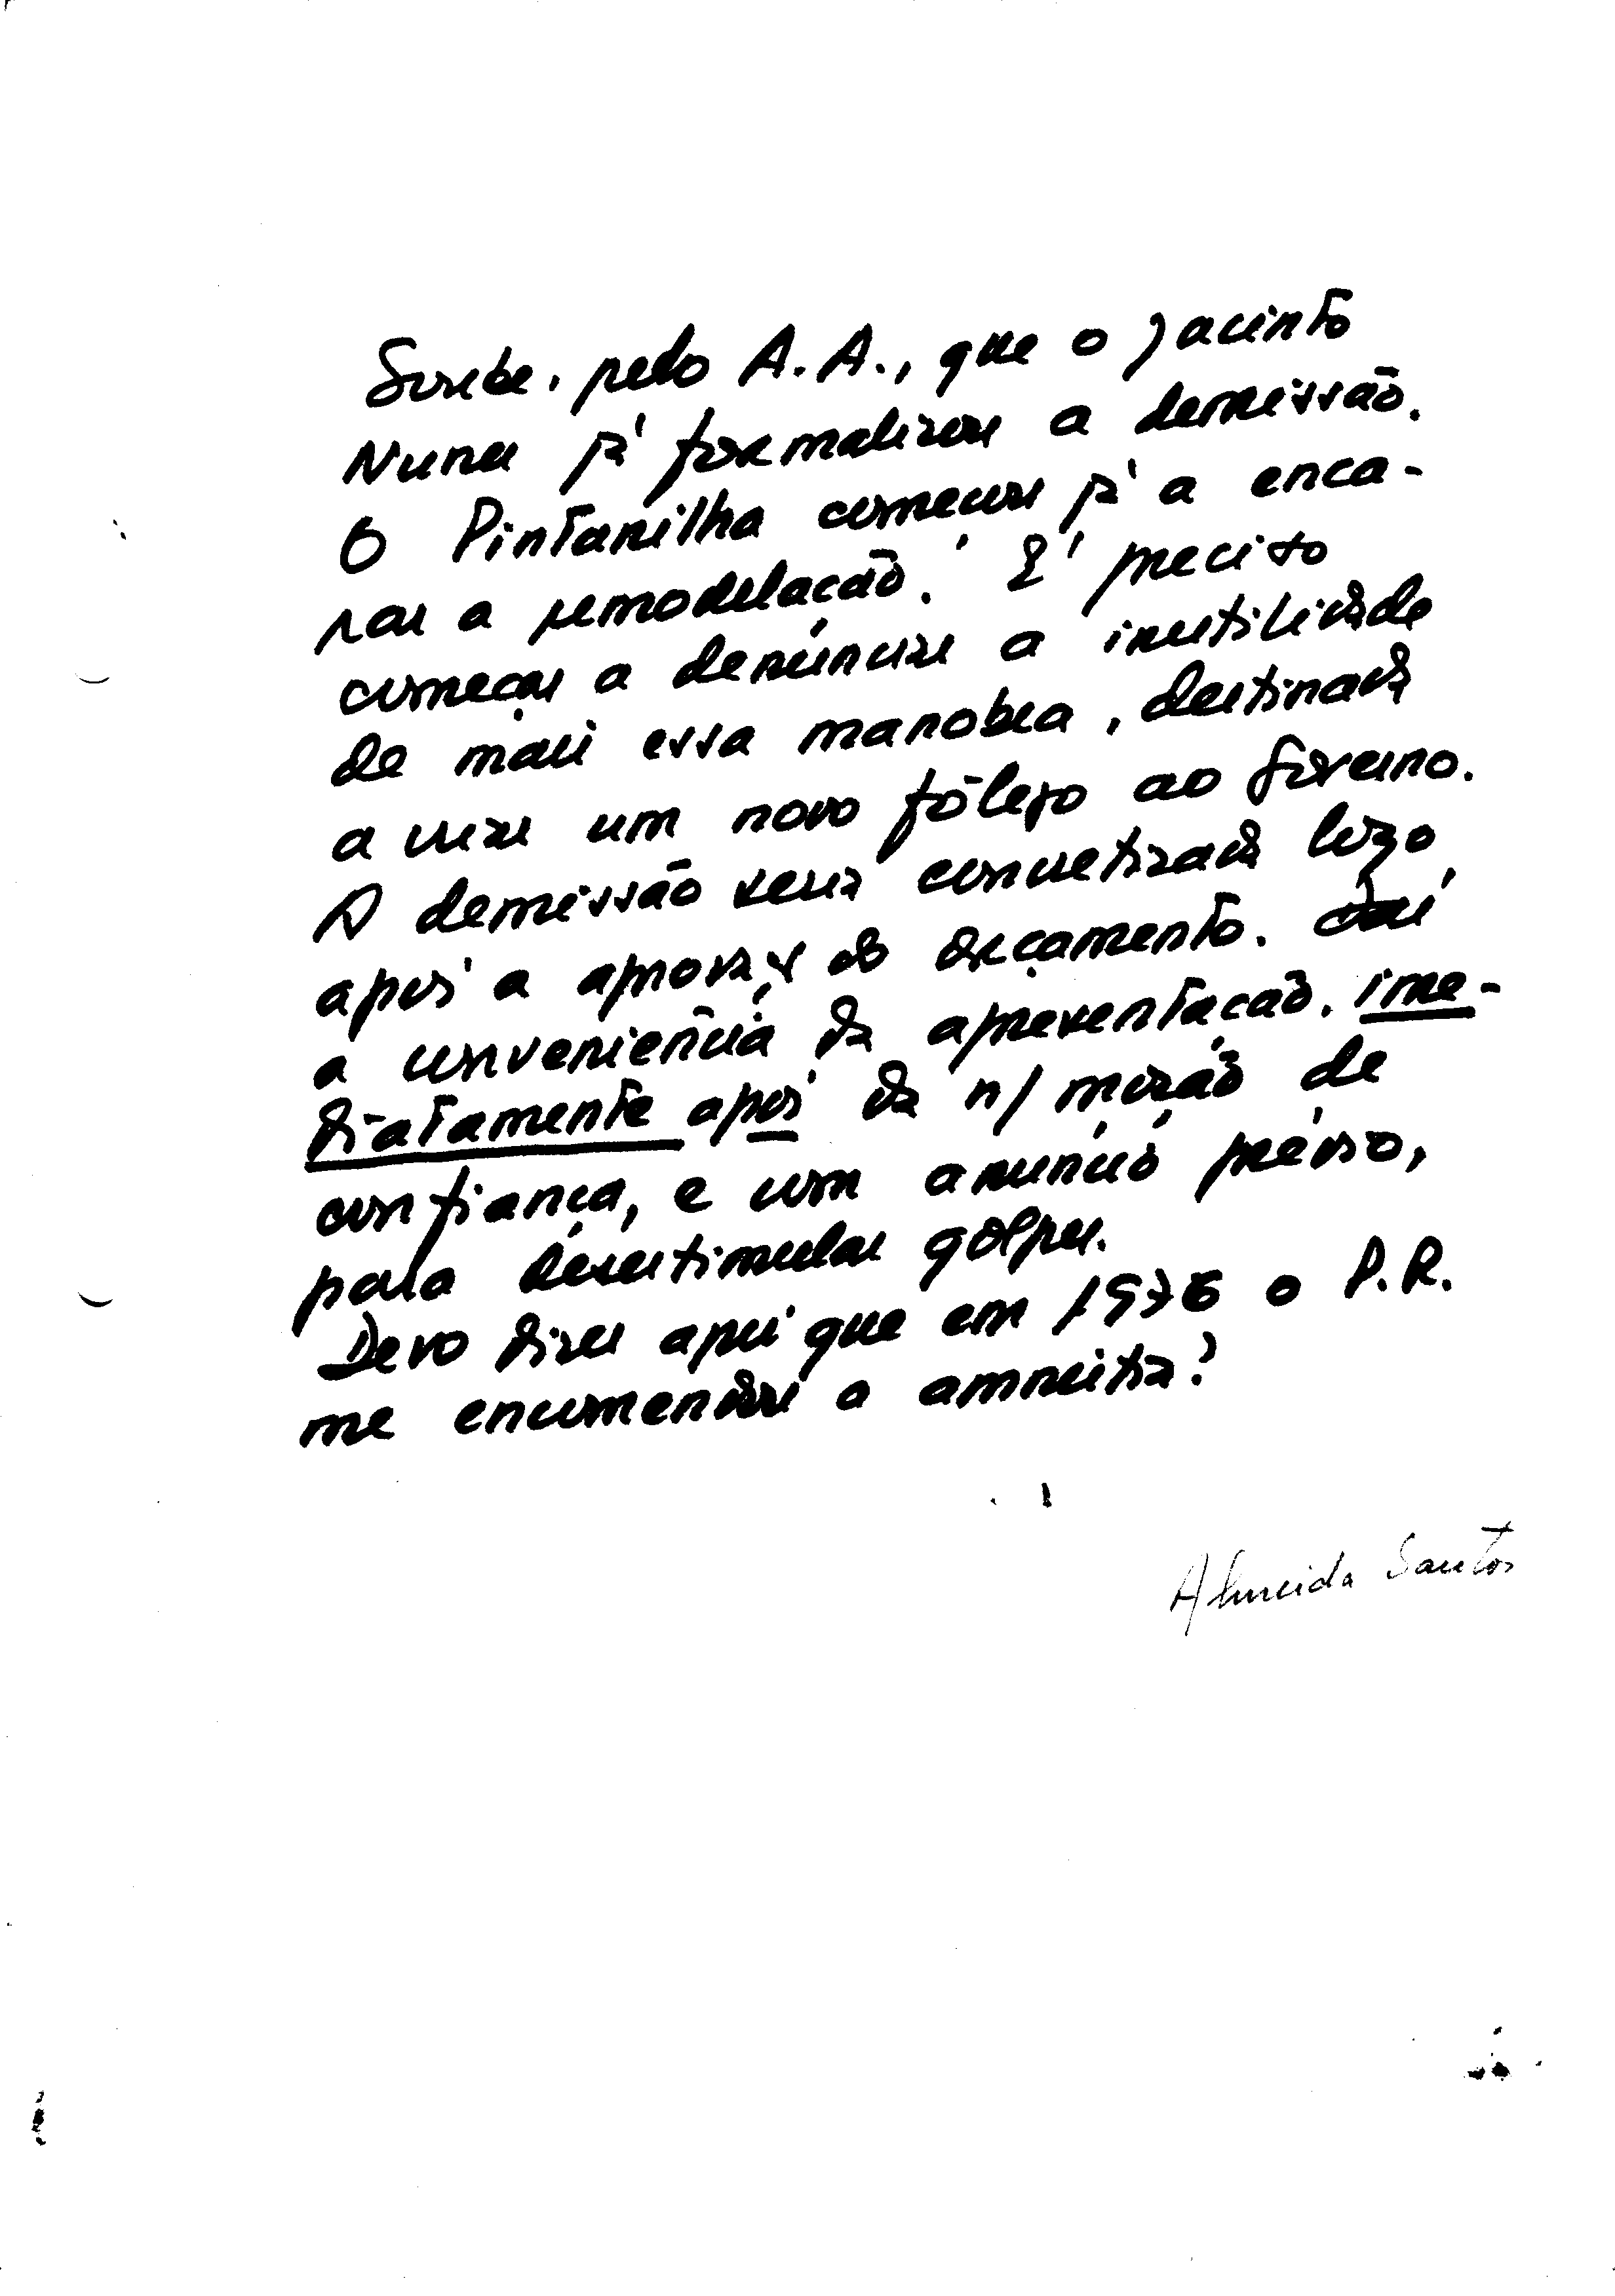 Soube, pelo A.A., que o Jacinto
Nunes já formalizou a demissão.
O Pintasilha começou já a enca-
rar a remodelação. É preciso
começar a denúnciar a inutilidade
de mais essa manobra, destinada
a criar um novo fôlego ao Governo.
A demissão será concretizada logo
após a aprovação do orçamento. Daí
a conveniência da apresentação, ime-
diatamente após da n/ moção de
confiança, e com anúncio prévio,
para desestimular golpes.
Devo dizer aqui que em 1976 o P.R.
me encomendou a amnistia?
Almeida Santos